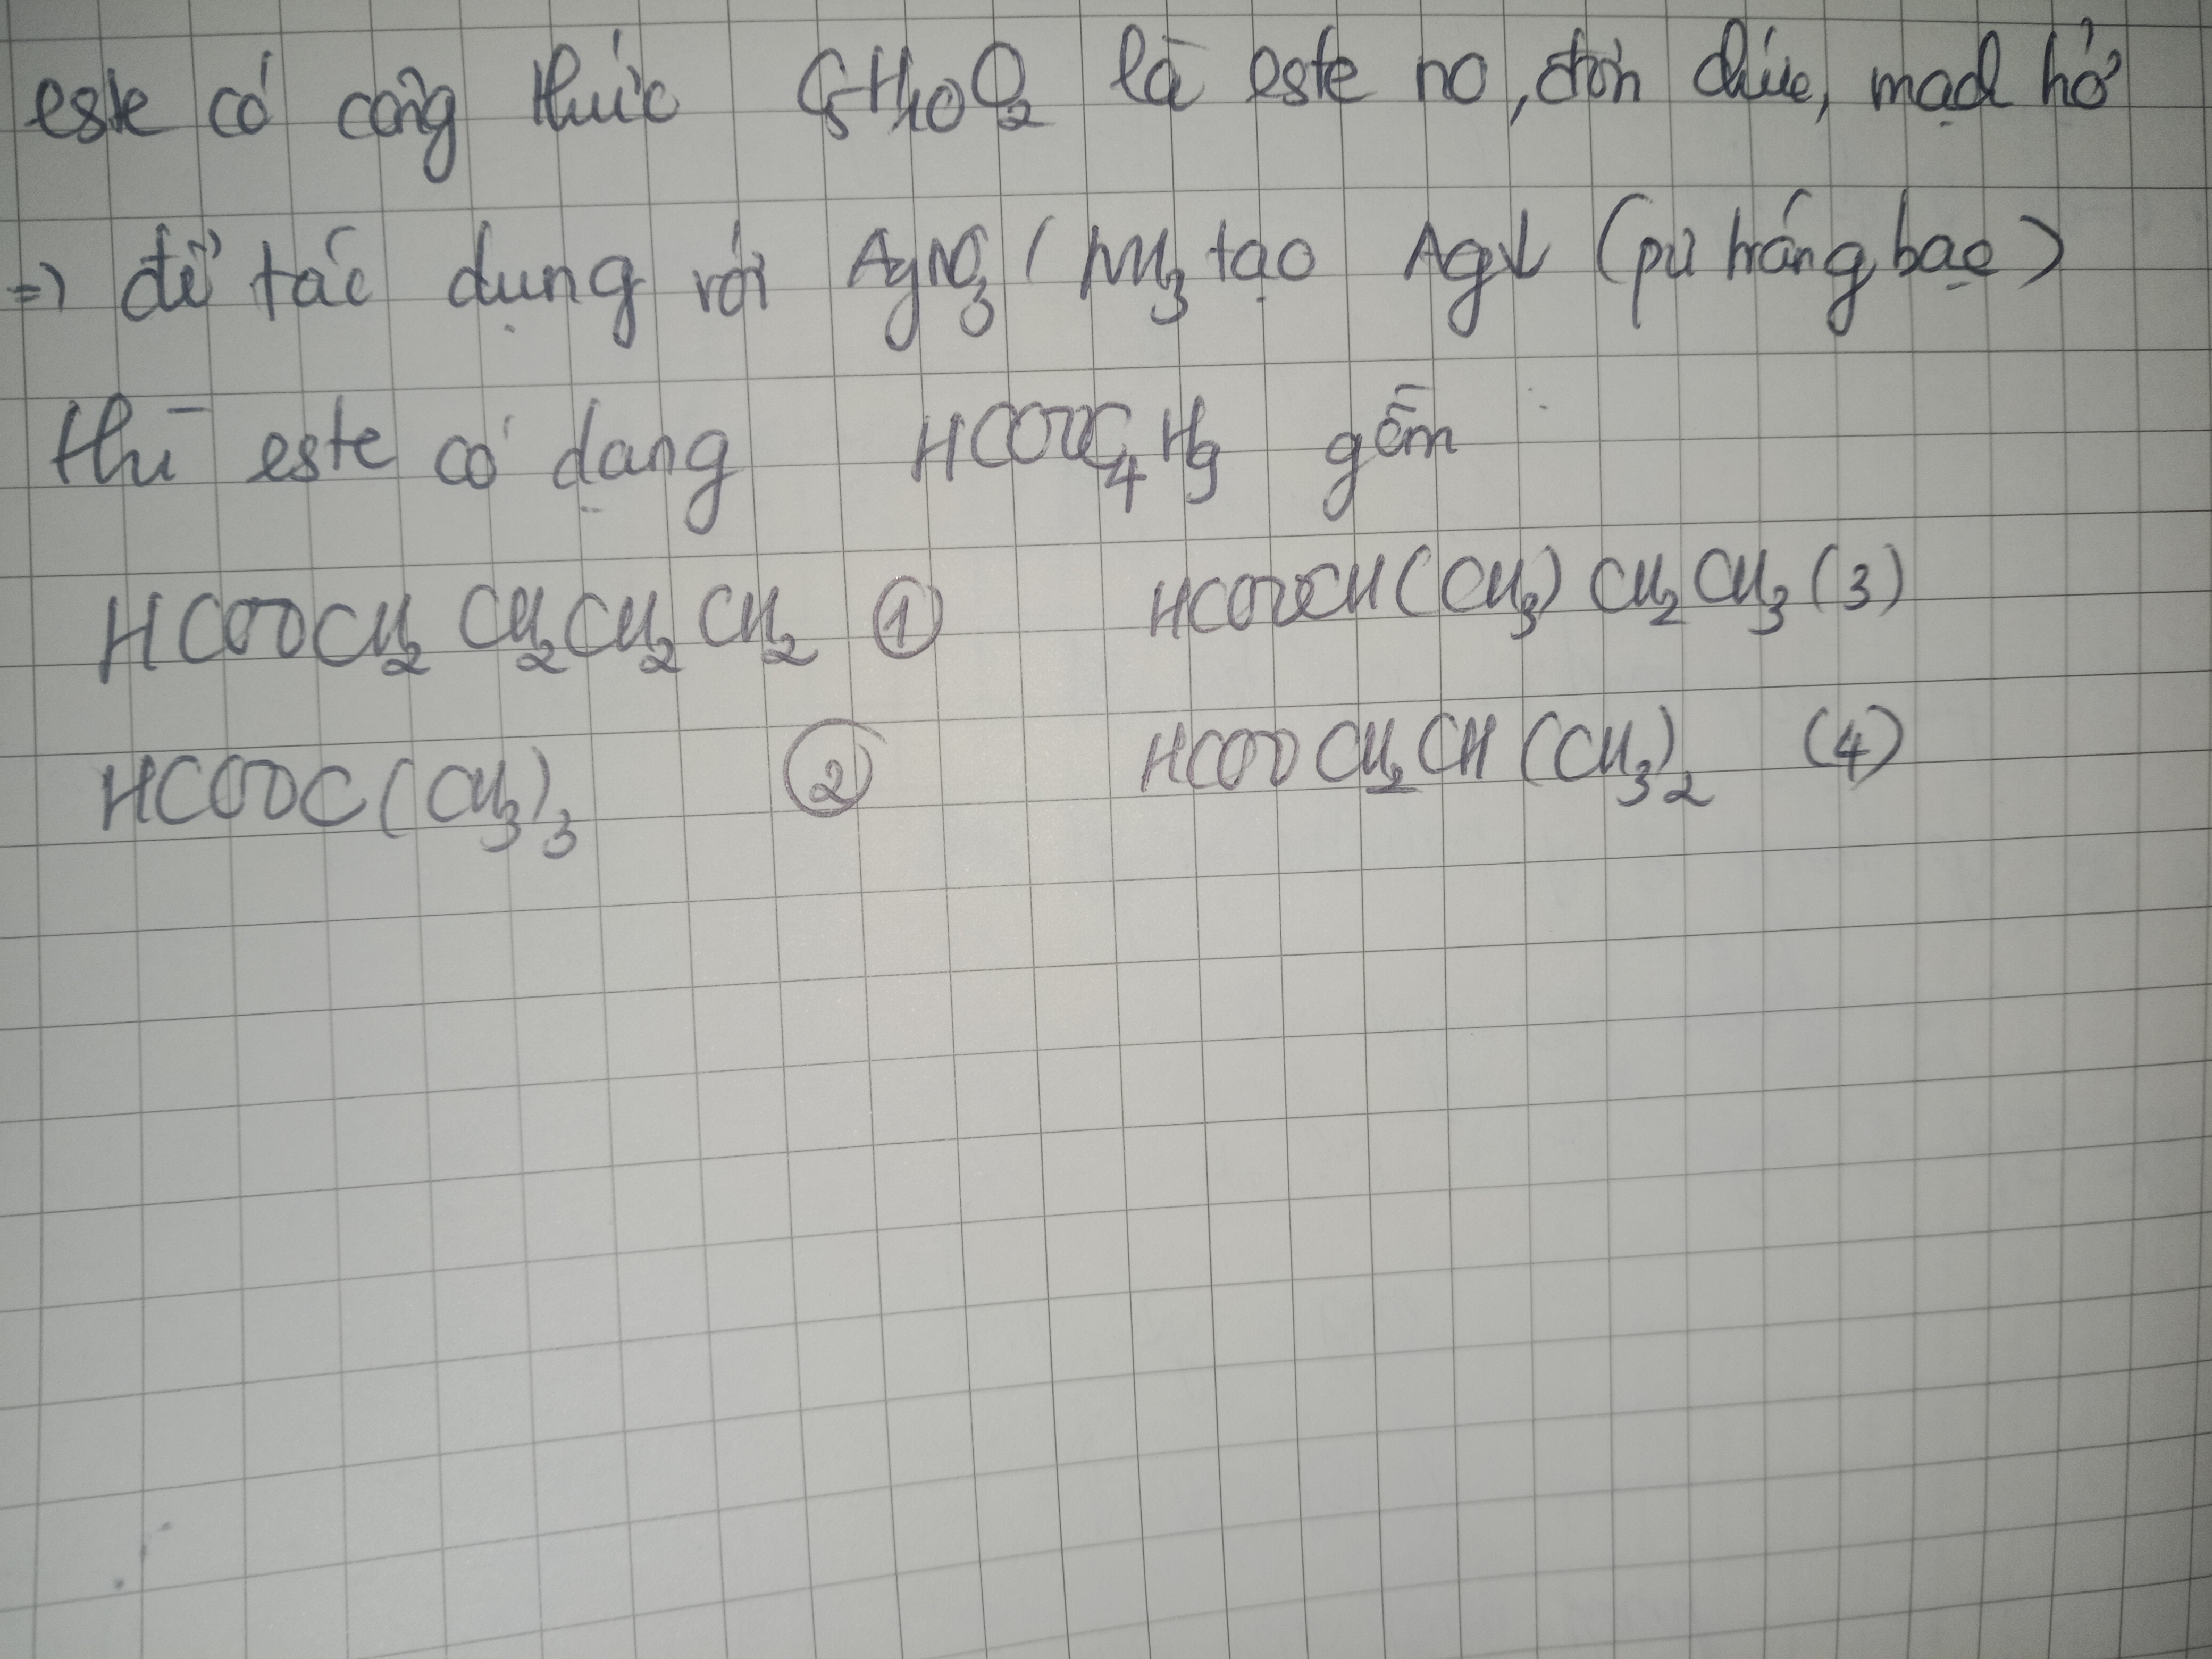 este có công thức C₅H₁₀O₂ là este no, đơn chức, mạch hở
=> để tác dụng với AgNO₃ / NH₃ tạo Ag↓ (pư tráng bạc)
thì este có dạng HCOOC₄H₉ gồm :
HCOOCH₂CH₂CH₂CH₂ ① HCOOCH(CH₃)CH₂CH₃ (3)
HCOOC(CH₃)₃ ② HCOOCH₂CH(CH₃)₂ (4)